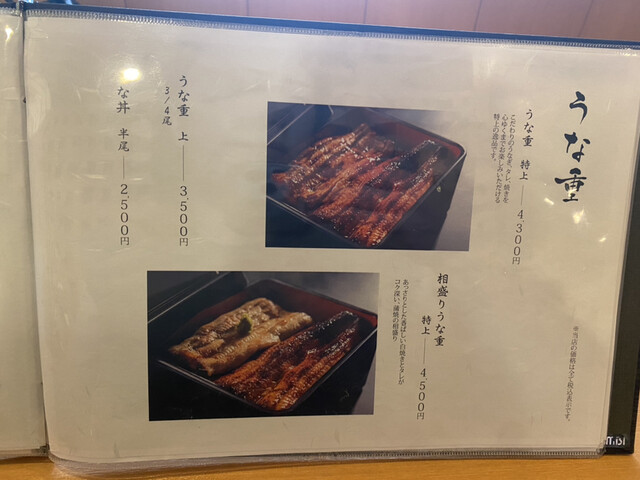 うな重
うな重 特上 ── 4,300円
こだわりのうなぎ、タレ、焼きを
心ゆくまでお楽しみいただける
特上の逸品です。
相盛りうな重
特上 ── 4,500円
あっさりとした香ばしい白焼きとタレが
コク深い、蒲焼の相盛り
うな重 上 ── 3,500円
3/4尾
な丼 半尾 ── 2,500円
※当店の価格は全て税込表示です。